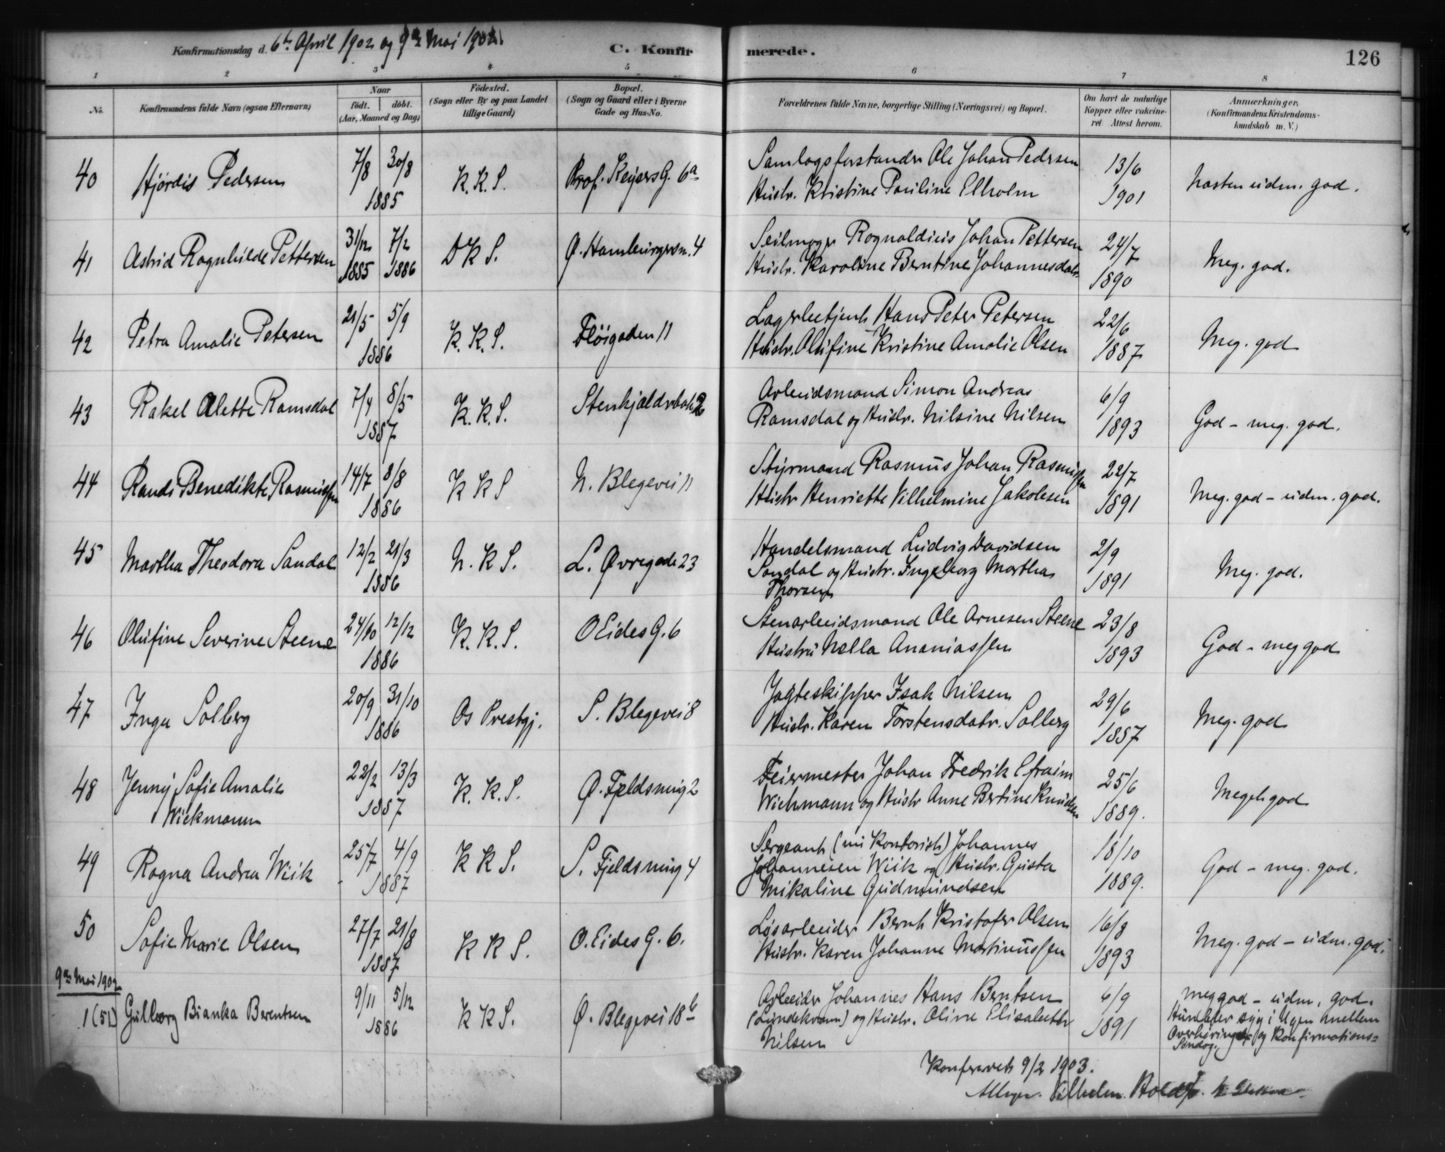 Konfirmationsdag d. 6te April 1902 og 9de Mai 1902.
C. Konfir merede.
126
1 2 3 4 5 6 7 8
No.
Konfirmandens fulde Navn (ogsaa Efternavn)
Naar
født. døbt.
(Aar, Maaned og Dag)
Fødested.
(Sogn eller By og paa Landet
tillige Gaard)
Bopæl.
(Sogn og Gaard eller i Byerne
Gade og Hus-No.
Forældrenes fulde Navne, borgerlige Stilling (Næringsvei) og Bopæl.
Om havt de naturlige
Kopper eller vakcine-
ret Attest herom.
Anmærkninger.
(Konfirmandens Kristendoms-
kundskab m. V.)
40 Hjørdis Pedersen 7/8 30/8 1885 K. K. S. Prof. Keysers G. 6a
Samlagsforstander Ole Johan Pedersen
Hustr. Kristine Pauline Elholm
13/6 1901 Næsten udm. god.
41 Astrid Ragnhilde Pettersen 31/12 1885 7/2 1886 D K S. Ø. Hamburgersm. 4
Seilmager Rognaldius Johan Pettersen
Hustr. Karoline Berntine Johannesdatr.
24/7 1890 Meg. god.
42 Petra Amalie Petersen 21/5 5/9 1886 K. K. S. Fløigaden 11
Lagerbetjent Hans Peter Petersen
Hustr. Olufine Kristine Amalie Olsen
22/6 1887 Meg. god
43 Rakel Alette Ramsdal 7/4 8/5 1887 K. K. S.
Arbeidsmand Simon Andreas
Ramsdal og Hustr. Nilsine Nilsen
6/9 1893 God - meg. god.
44 Randi Benedikte Rasmussen 14/7 8/8 1886 K K S N. Blegevei 11
Styrmand Rasmus Johan Rasmussen
Hustr Henriette Vilhelmine Jakobsen
22/7 1891 Meg. god - udm. god.
45 Martha Theodora Sandal 12/2 21/3 1886 N. K S. L. Øvregade 23
Handelsmand Ludvig Davidsen
Sandal og Hustr. Ingeborg Martha
Thorsen
2/9 1891 Meg. god.
46 Olufine Severine Steene 24/10 12/12 1886 K. K. S. O Eides G. 6
Stenarbeidsmand Ole Arnesen Steene
Hustru Nella Ananiassen
23/8 1893 God - meg god
47 Inga Solberg 20/9 31/10 1886 Os Prestgj. S. Blegevei 8
Jagteskipper Isak Nilsen
Hustr. Karen Torstensdatr. Solberg
29/6 1887 Meg. god
48 Jenny Sofie Amalie
Wichmann 22/2 13/3 1887 K. K. S. Ø. Fjeldsmug 2
Feiermester Johan Fredrik Efraim
Wichmann og Hustr Anne Bertine Knudsen
25/6 1889. Meget god
49 Ragna Andrea Wiik 25/7 4/9 1887 K K S. S. Fjeldsmug 4
Sergeant (nu Kontorist) Johannes
Johannesen Wiik og Hustr. Gusta
Mikaline Gudmundsen
18/10 1889. God - meg. god.
50 Sofie Marie Olsen 27/7 21/8 1887 K K S. O. Eides G. 6.
Løsarbeider Bernt Kristofer Olsen
Hustr. Karen Johanne Martinussen
16/8 1893 Meg. god - udm. god.
9de Mai 1902
1 (51) Gulborg Bianka Berentsen 9/11 5/12 1886 K K S. Ø. Blegevei 18b
Arbeider Johannes Hans Berntsen
og Hustr. Oline Elisabeth
Nilsen
6/9 1891 meg god - udm. god.
Hun blev syg i Ugen mellem
Overhøringen og Konfirmations=
Søndag.
Konfereret 9/2 1903.
Vilhelm Hold